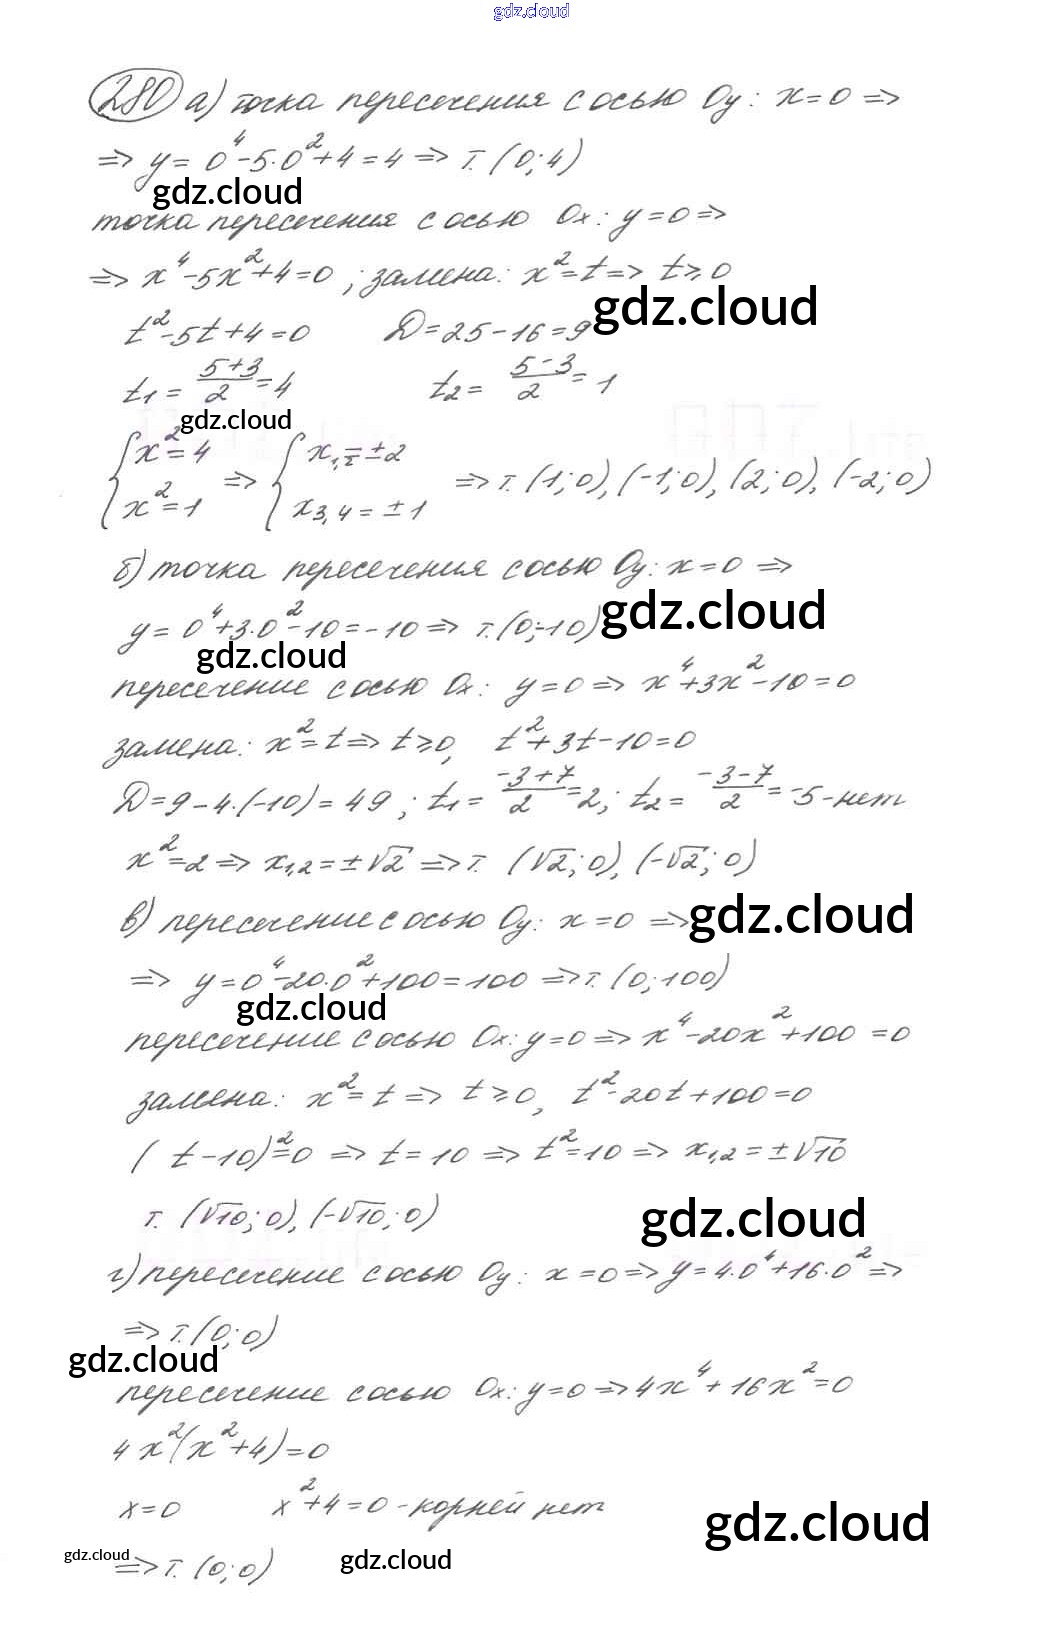 gdz.cloud
280 а) точка пересечения с осью Oy: x=0 =>
=> y= 0⁴-5·0²+4=4 => т. (0;4)
gdz.cloud
точка пересечения с осью Ox: y=0 =>
=> x⁴-5x²+4=0 ; замена: x²=t => t≥0
gdz.cloud
t²-5t+4=0 D=25-16=9
t₁= (5+3)/2 =4 t₂= (5-3)/2 = 1
gdz.cloud
{ x²=4 => { x₁,₂=±2 => т. (1;0), (-1;0), (2;0), (-2;0)
{ x²=1 { x₃,₄=±1
б) точка пересечения с осью Oy: x=0 =>
gdz.cloud
y= 0⁴+3·0²-10=-10 => т. (0;-10)
gdz.cloud
пересечение с осью Ox: y=0 => x⁴+3x²-10=0
замена: x²=t => t≥0, t²+3t-10=0
D=9-4·(-10)=49 ; t₁= (-3+7)/2 =2; t₂= (-3-7)/2 =-5-нет
x²=2 => x₁,₂=±√2 => т. (√2;0), (-√2;0)
в) пересечение с осью Oy: x=0 =>
gdz.cloud
=> y=0⁴-20·0²+100=100 => т. (0;100)
gdz.cloud
пересечение с осью Ox: y=0 => x⁴-20x²+100=0
замена: x²=t => t≥0, t²-20t+100=0
(t-10)²=0 => t=10 => t²=10 => x₁,₂=±√10
т. (√10;0), (-√10;0)
gdz.cloud
г) пересечение с осью Oy: x=0 => y=4·0⁴+16·0² =>
=> т. (0;0)
gdz.cloud
пересечение с осью Ox: y=0 => 4x⁴+16x²=0
4x²(x²+4)=0
x=0 x²+4=0 -корней нет
gdz.cloud
=> т. (0;0)
gdz.cloud
gdz.cloud